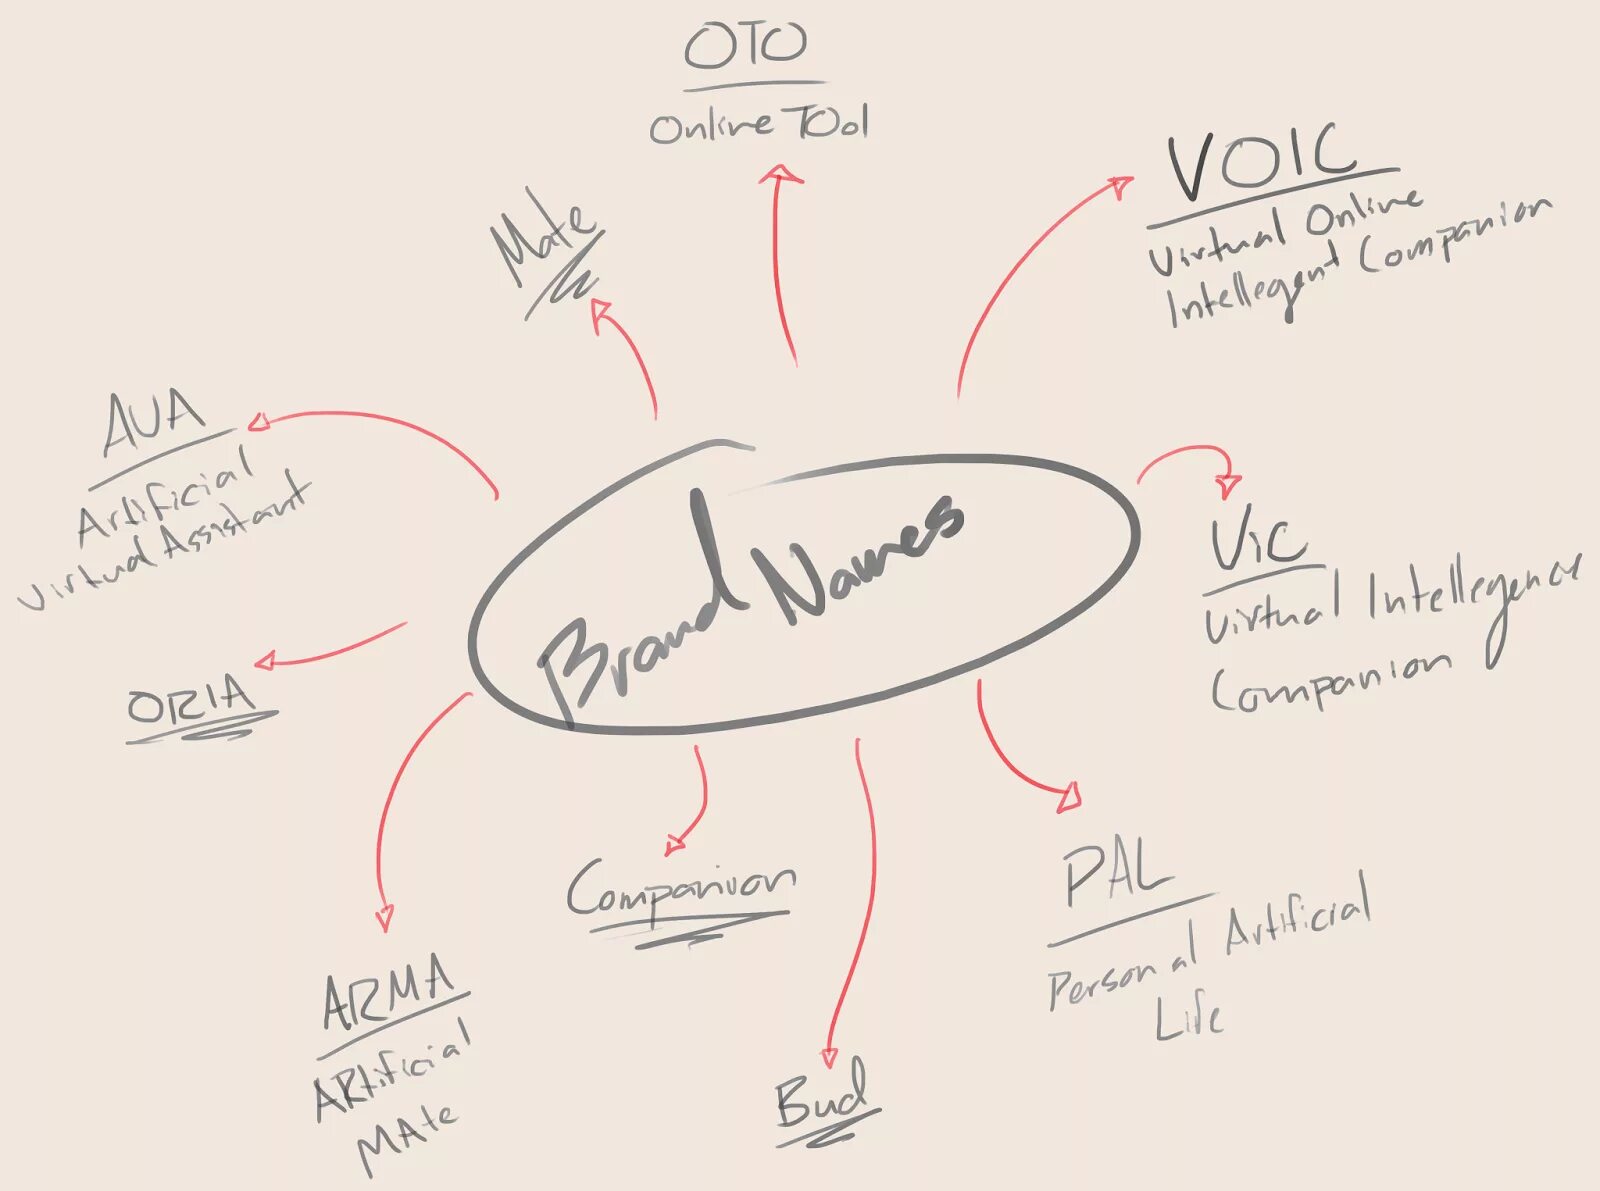 OTO
Online TOol
VOIC
Virtual Online
Intellegent Companion
Mate
AVA
Artificial
Virtual Assistant
Brand Names
ViC
Virtual Intellegence
Companion
ORIA
Companion
PAL
Personal Artificial
Life
ARMA
ARtificial
MAte
Bud